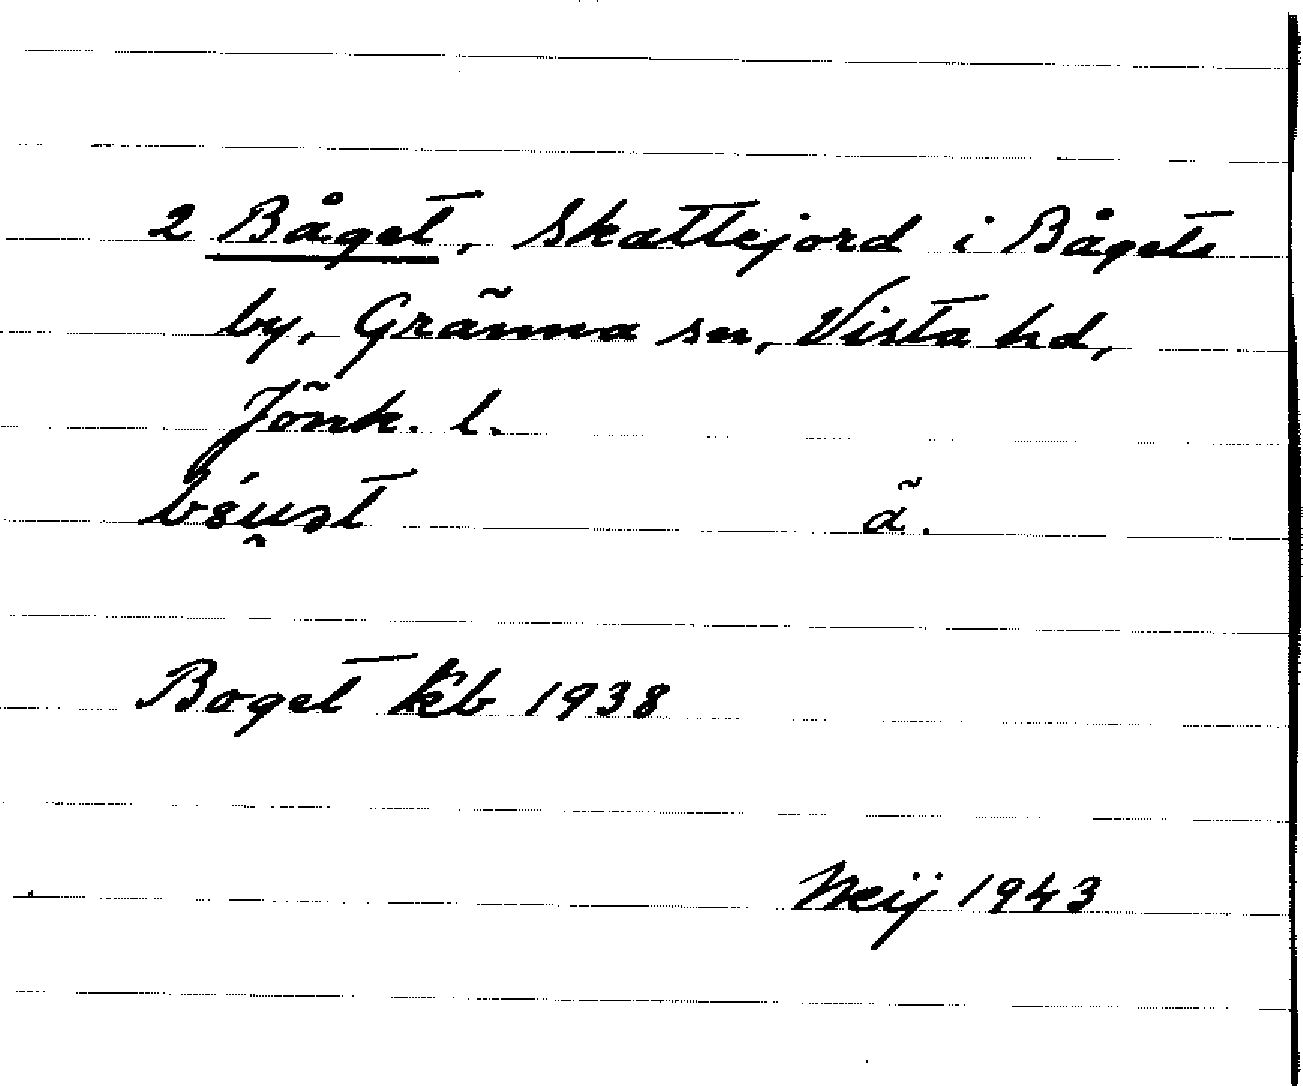 2 Båget, Skattejord i Bågets
by, Gränna sn, Vista hd,
Jönk. l.
ä.
Boget kb 1938
Meij 1943